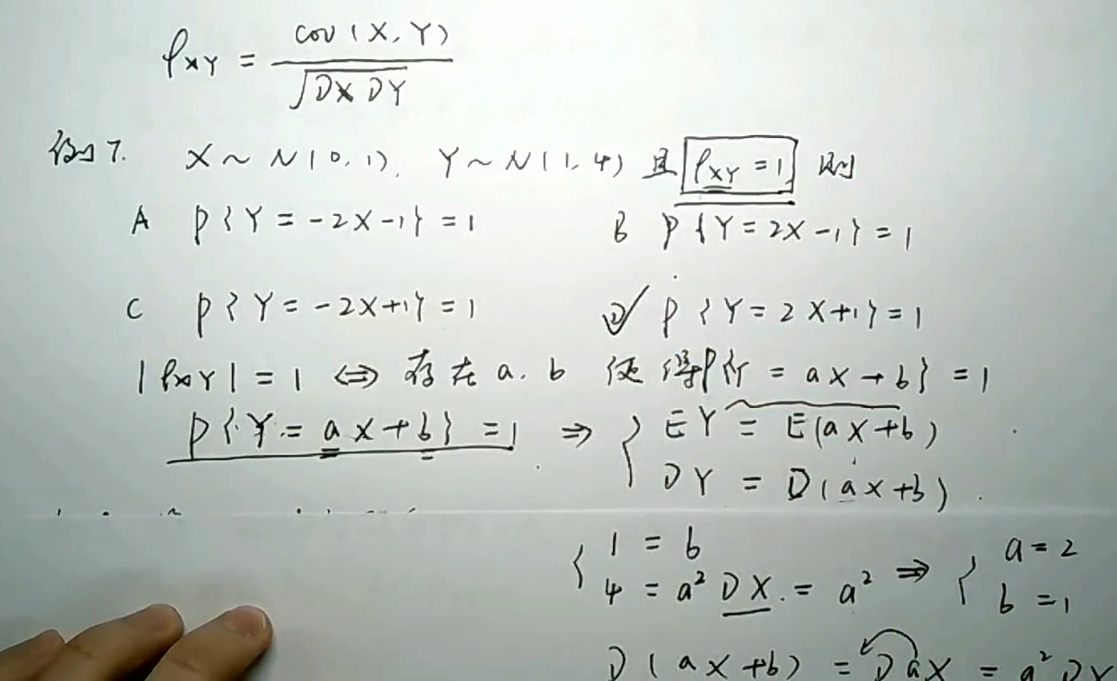 ρXY = cov(X, Y) / √DX DY
例7. X ~ N(0, 1), Y ~ N(1, 4) 且 ρXY = 1, 则
A P{Y = -2X-1} = 1 B P{Y = 2X-1} = 1
C P{Y = -2X+1} = 1 D✓ P{Y = 2X+1} = 1
|ρXY| = 1 ⇔ 存在a. b 使得P{Y = aX+b} = 1
P{Y = aX+b} = 1 ⇒ { EY = E(aX+b)
DY = D(aX+b)
{ 1 = b
4 = a² DX = a² ⇒ { a = 2
b = 1
D(aX+b) = DaX = a² DX